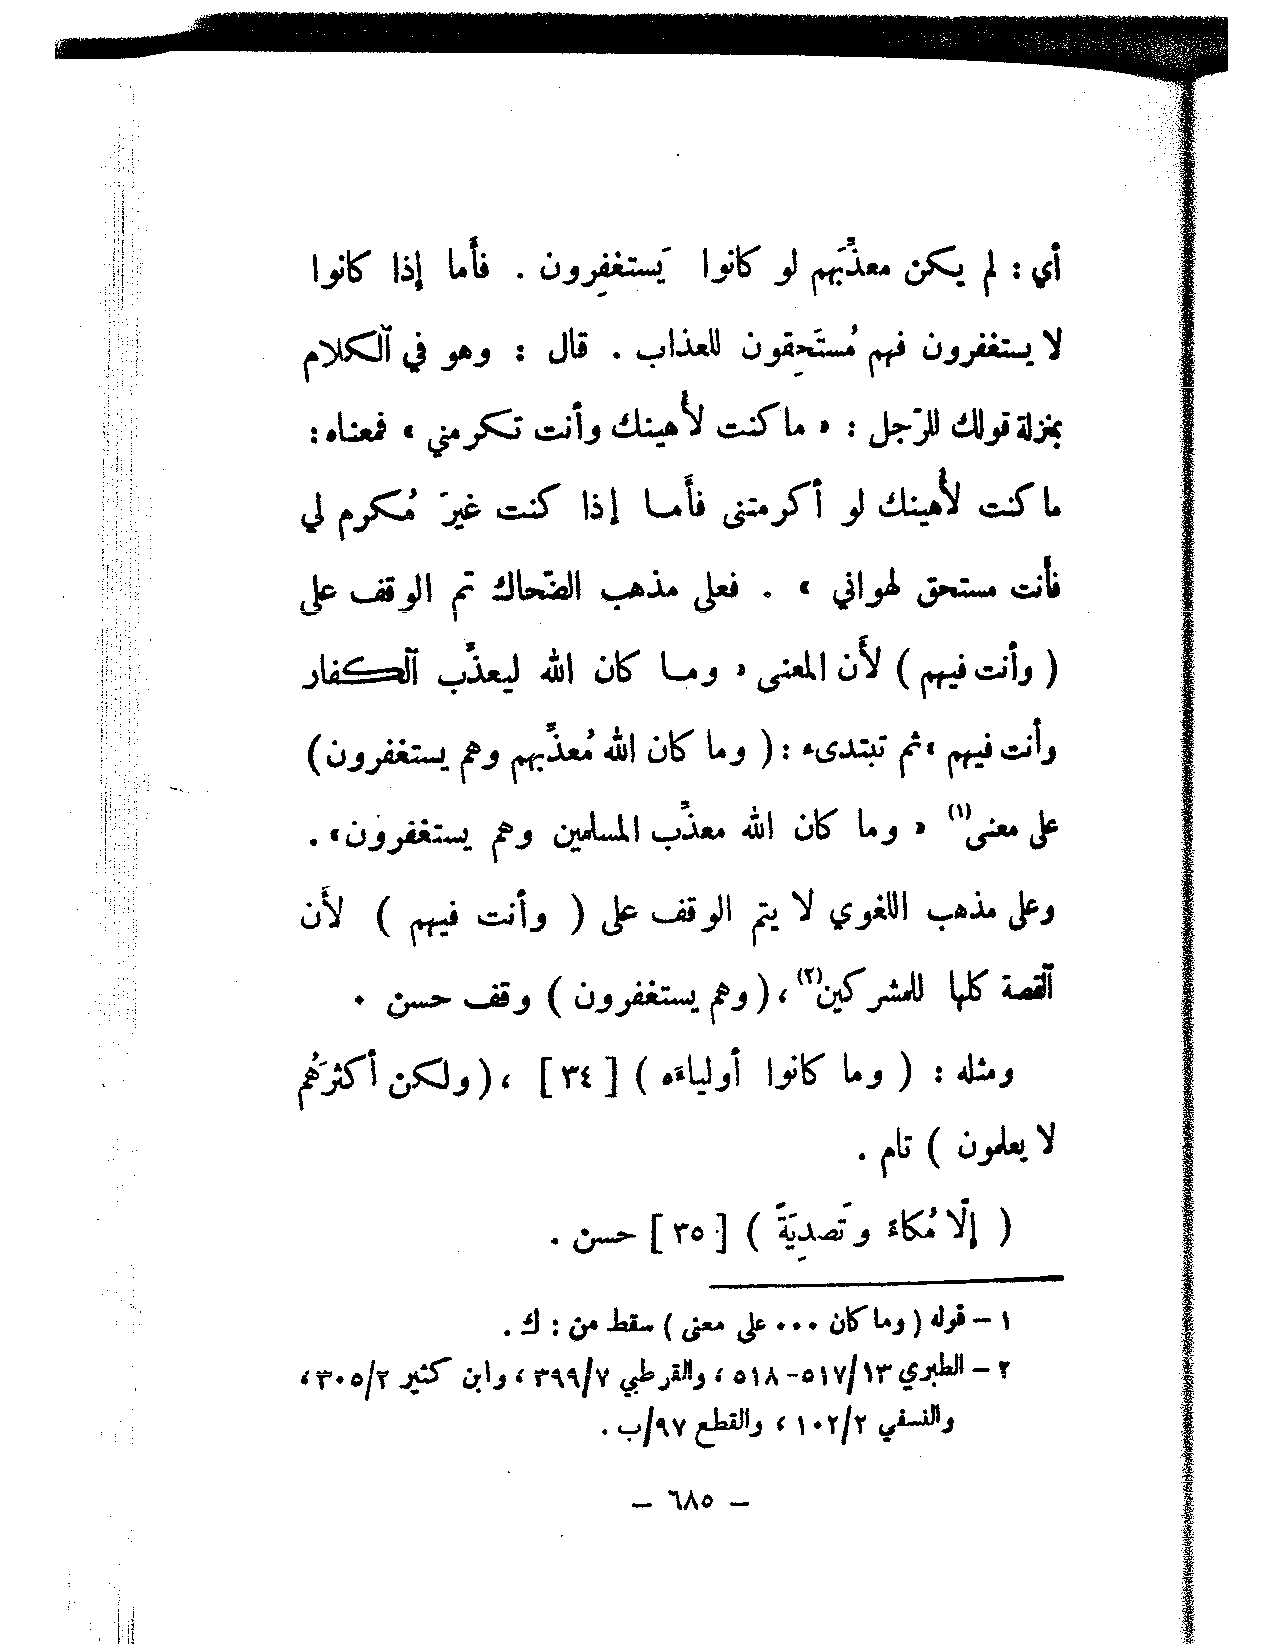 أي : لم يكن معذِّبَهم لو كانوا يَستغفِرون . فأَما إذا كانوا
لا يستغفرون فهم مُستَحِقون للعذاب . قال : وهو في ٱلكلام
بمنزلة قولك للرّجل : « ما كنت لأُهينك وأنت تكرمني » فمعناه :
ما كنت لأُهينك لو أكرمتنى فأَما إذا كنت غيرَ مُكرم لي
فأنت مستحق لهواني » . فعلى مذهب الضّحاك تم الوقف على
( وأنت فيهم ) لأَن المعنى « وما كان الله ليعذِّب ٱلكفار
وأنت فيهم » ثم تبتدىء : ( وما كان الله مُعذِّبهم وهم يستغفرون )
على معنى(١) « وما كان الله معذِّب المسلمين وهم يستغفرون » .
وعلى مذهب اللغوي لا يتم الوقف على ( وأنت فيهم ) لأَن
ٱلقصة كلها للمشركين(٢) ، ( وهم يستغفرون ) وقف حسن .
ومثله : ( وما كانوا أولياءَه ) [ ٣٤ ] ، ( ولكن أكثرَهُم
لا يعلمون ) تام .
( إلّا مُكاءً وتَصدِيَةً ) [ ٣٥ ] حسن .
١ – قوله ( وما كان ... على معنى ) سقط من : ك .
٢ – الطبري ١٣/٥١٧-٥١٨ ، والقرطبي ٧/٣٩٩ ، وابن كثير ٢/٣٠٥ ،
والنسفي ٢/١٠٢ ، والقطع ٩٧/ب .
– ٦٨٥ –